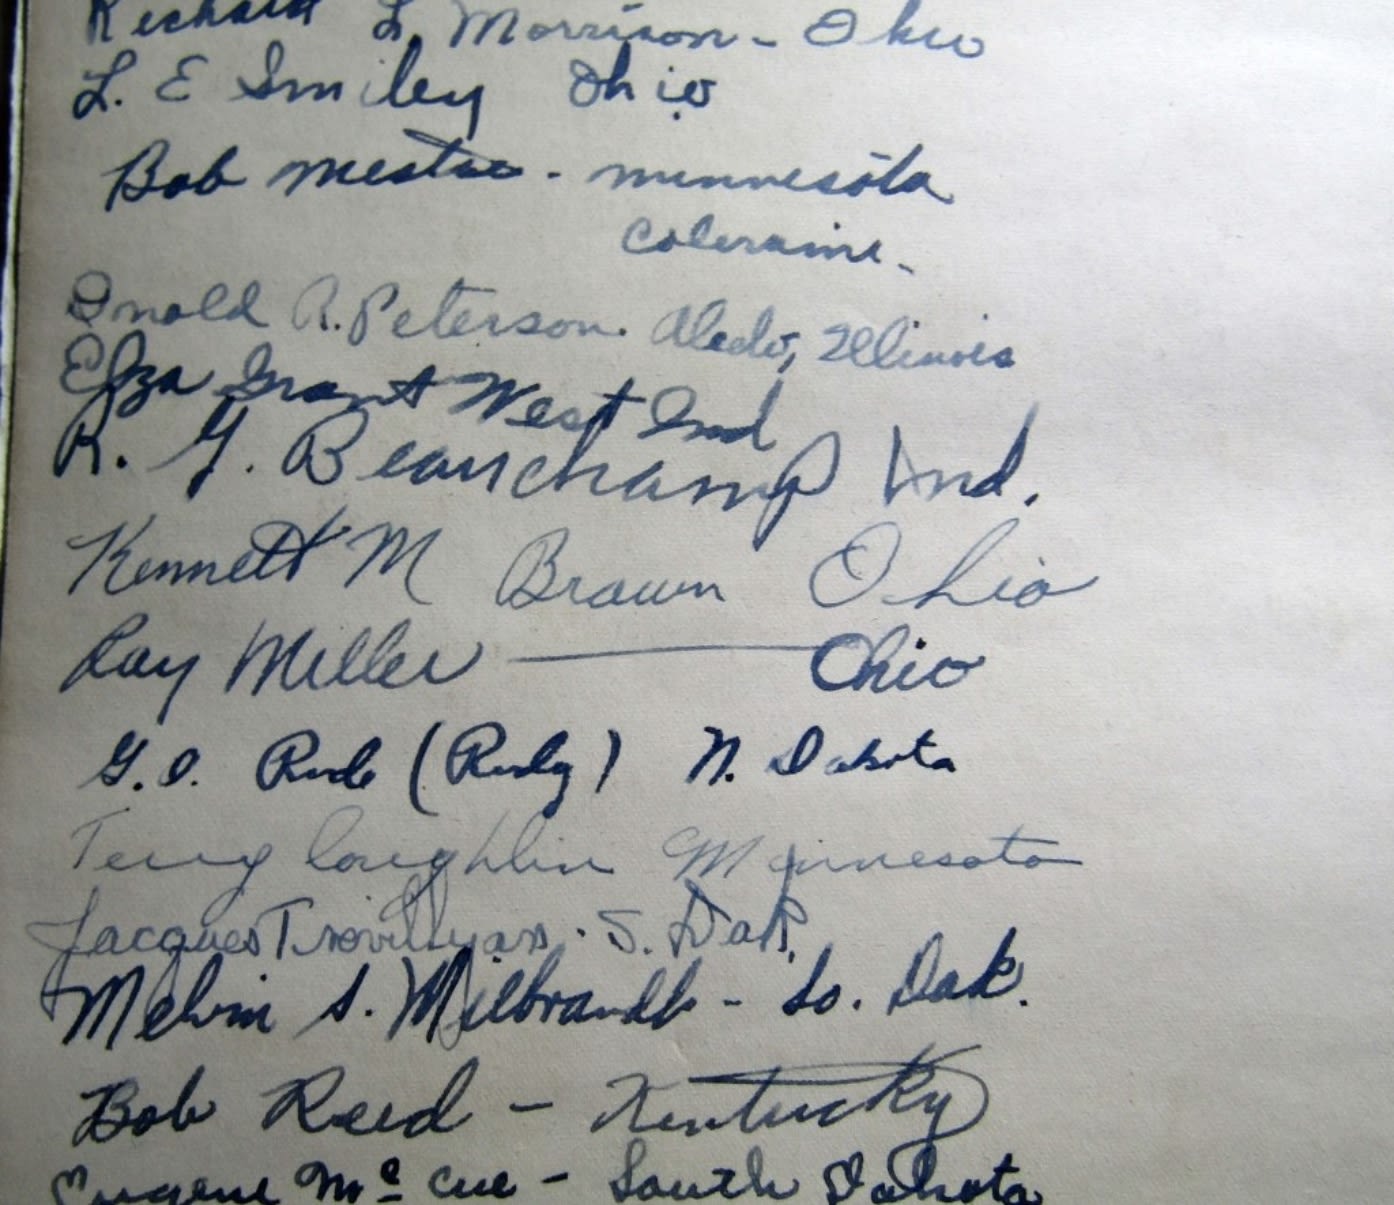 Richard L. Morrison - Ohio
L. E Smiley Ohio
Bob - minnesota
Coleraine.
R. Peterson. Aledo, Illinois
Elza Grant West Ind
R. G. Beauchamp Ind.
Kennett M Brown Ohio
Ray Miller — Ohio
G. O. Rude (Rudy) N. Dakota
Terry loughlin Minnesota
Jacques Trovillyan. S. Dak.
Melvin S. Milbrandt - So. Dak.
Bob Reed - Kentucky
Eugene Mc Cue - South Dakota